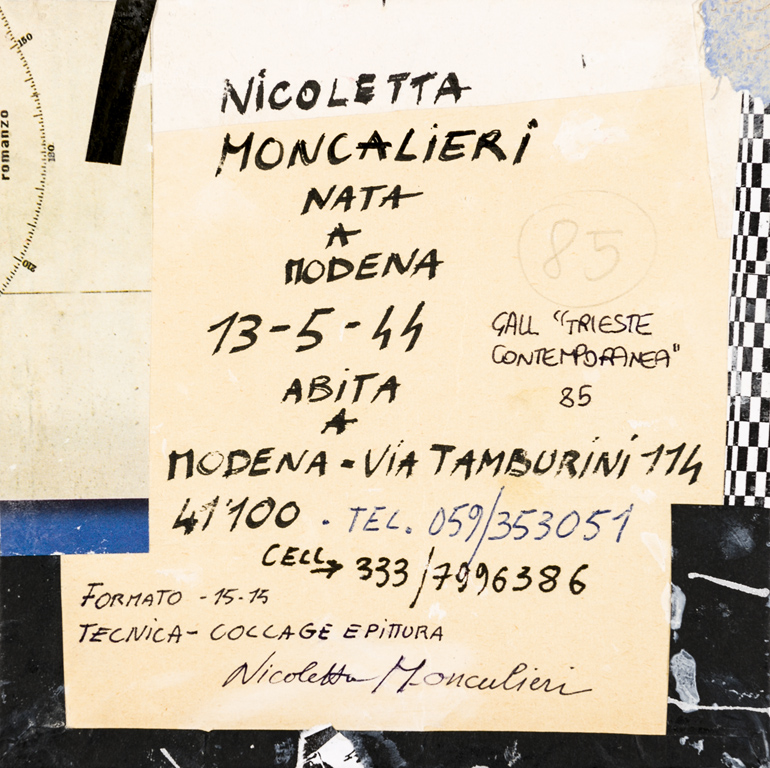 150
180
210
romanzo
NICOLETTA
MONCALIERI
NATA
A
MODENA
85
13-5-44
GALL "TRIESTE
CONTEMPORANEA"
85
ABITA
A
MODENA - VIA TAMBURINI 114
41100 . TEL. 059/353051
CELL→ 333/7996386
FORMATO - 15-15
TECNICA - COLLAGE E PITTURA
Nicoletta Moncalieri